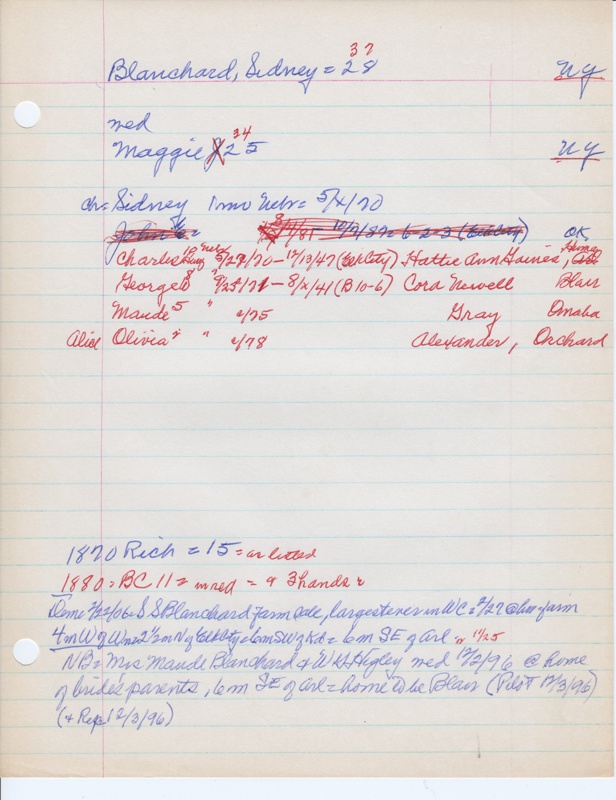 37
Blanchard, Sidney = 28 NY
wed
34
Maggie J 25 NY
ch = Sidney 1mo Nebr = 5/x/70
John 7/81 - 10/7/87 = 6-2-3 OK
Charles 10 Nebr 5/27/70 - 12/13/47 (Elk City) Hattie Ann Gaines, Homer
George 8 " 9/25/71 - 8/x/41 (B 10-6) Cora Newell Blair
Maude 5 " c/75 Gray Omaha
Alice Olivia " c/78 Alexander, Orchard
1870 Rich = 15 = as listed
1880 = BC 11 = in red = + 3 hands
2/22/06 = S S Blanchard Farm Sale, largest ever in WC = 2/27 @ his farm
4m W of Wn = 2½ m N of Elk City = 6m SW of Kd = 6m SE of arl " 11/25
NB = Mrs Maude Blanchard & W H Higley wed 12/2/96 @ home
of brides parents, 6m SE of arl = home to be Blair (Pilot 12/3/96)
(+ Rep 12/3/96)